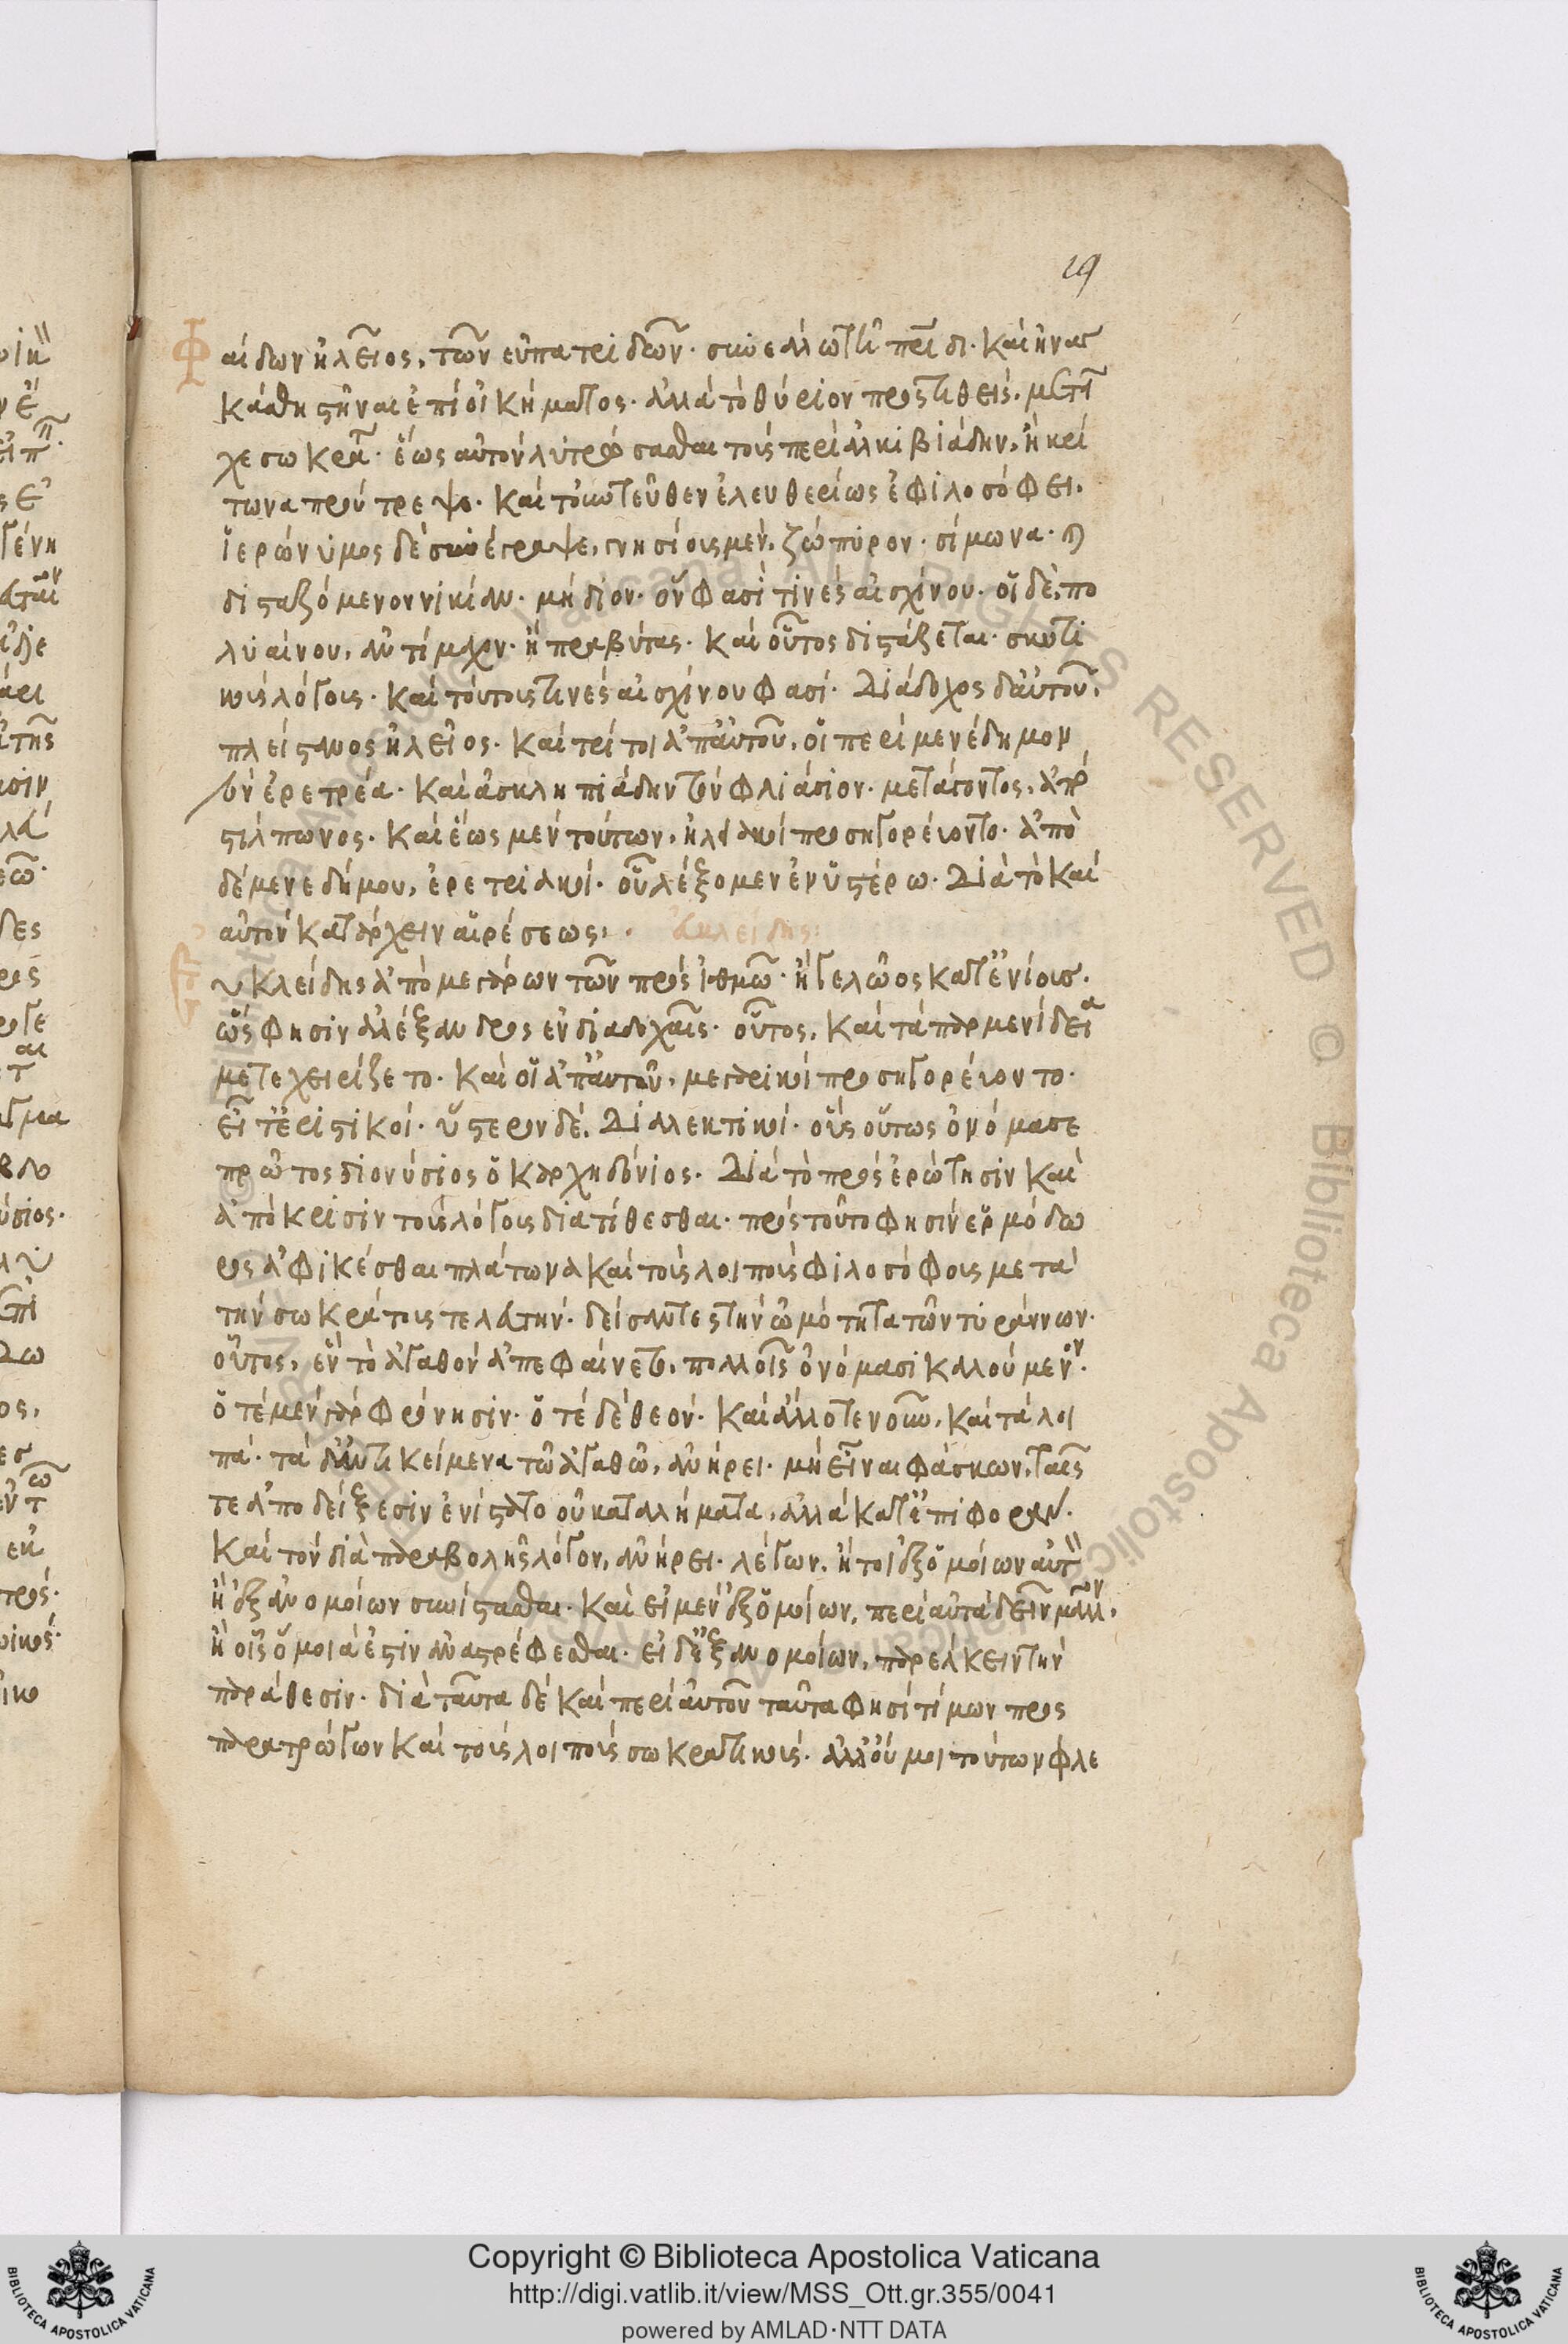 19
Φαίδων ἠλεῖος, τῶν εὐπατριδῶν· συνεάλω τῇ πρίδι· καὶ ἠναγ
κάσθη στῆναι ἐπὶ οἰκήματος· ἀλλὰ τὸ θύριον προστιθεὶς, μετεῖ
χε σωκρα· ἕως αὐτὸν λυτρώσασθαι τοὺς περὶ ἀλκιβιάδην, ἢ κρί
τωνα προύτρεψε· καὶ τὸ ἐντεῦθεν ἐλευθερίως ἐφιλοσόφει.
ἱερώνυμος δὲ συνέγραψε, γνησίους μὲν, ζώπυρον· σίμωνα· καὶ
δισταζόμενον νικίαν· μήδιον· ὅν φασί τινὲς αἰσχίνου· οἱ δὲ, πο
λυαίνου, ἀντίμαχον· ἢ πρεσβύτας· καὶ οὗτος διστάζεται· σκυτι
κοὺς λόγους· καὶ τούτους τινὲς αἰσχίνου φασί· Διάδοχος δ' αὐτοῦ,
πλείστανος ἠλεῖος· καὶ τρίτοι ἀπ' αὐτοῦ, οἱ περὶ μενέδημον
τὸν ἐρετριέα· καὶ ἀσκληπιάδην τὸν φλιάσιον· μετάγοντος, ἀπὸ
στίλπωνος· καὶ ἕως μὲν τούτων, ἠλιακοὶ προσηγορεύοντο· ἀπὸ
δὲ μενεδήμου, ἐρετριακοί· οὗ λέξομεν ἐν ὑστέρω· Διὰ τὸ καὶ
αὐτὸν κατάρχειν αἱρέσεως·
ἐυκλείδης:
Ευκλείδης ἀπὸ μεγάρων τῶν πρὸς ἰσθμῶ· ἢ γελῶος κατ' ἐνίους·
ὥς φησιν ἀλέξανδρος ἐν διαδοχαῖς· οὗτος, καὶ τὰ παρμενίδεια
μετεχειρίζετο· καὶ οἱ ἀπ' αὐτοῦ, μεγαρικοὶ προσηγορεύοντο·
εἶτ' ἐριστικοί· ὕστερον δὲ, Διαλεκτικοί· οὓς οὕτως ὀνόμασε
πρῶτος διονύσιος ὁ καρχηδόνιος· Διὰ τὸ πρὸς ἐρώτησιν καὶ
ἀπόκρισιν τοὺς λόγους διατίθεσθαι· πρὸς τοῦτο φησὶν ἑρμόδω
ρος ἀφικέσθαι πλάτωνα καὶ τοὺς λοιποὺς φιλοσόφους μετὰ
τὴν σωκράτους τελευτὴν· δείσαντες τὴν ὠμότητα τῶν τυράννων·
οὗτος, ἓν τὸ ἀγαθὸν ἀπεφαίνετο, πολλοῖς ὀνόμασι καλούμενον·
ὁτὲ μὲν γὰρ φρόνησιν· ὁτὲ δὲ θεόν· καὶ ἄλλοτε νοῦν, καὶ τὰ λοι
πά· τὰ δ' ἀντικείμενα τῶ ἀγαθῶ, ἀνήρει· μὴ εἶναι φάσκων, ταῖς
τε ἀποδείξεσιν ἐνίστατο οὐ κατὰ λήμματα, ἀλλὰ κατ' ἐπιφοράν·
καὶ τὸν διὰ παραβολῆς λόγον, ἀνήρει· λέγων, ἤτοι ἐξ ὁμοίων αὐτὸν
ἢ ἐξ ἀνομοίων συνίστασθαι· καὶ εἰ μὲν ἐξ ὁμοίων, περὶ αὐτὰ δεῖν μᾶλλον,
ἢ οἷς ὅμοιά ἐστιν ἀναστρέφεσθαι· εἰ δ' ἐξ ἀνομοίων, παρέλκειν τὴν
παράθεσιν· διὰ ταῦτα δὲ καὶ περὶ αὐτοῦ ταῦτα φησὶ τίμων προς
παρατρώγων καὶ τοὺς λοιποὺς σωκρατικούς· ἀλλ' οὔ μοι τούτων φλε
Copyright © Biblioteca Apostolica Vaticana
http://digi.vatlib.it/view/MSS_Ott.gr.355/0041
powered by AMLAD·NTT DATA